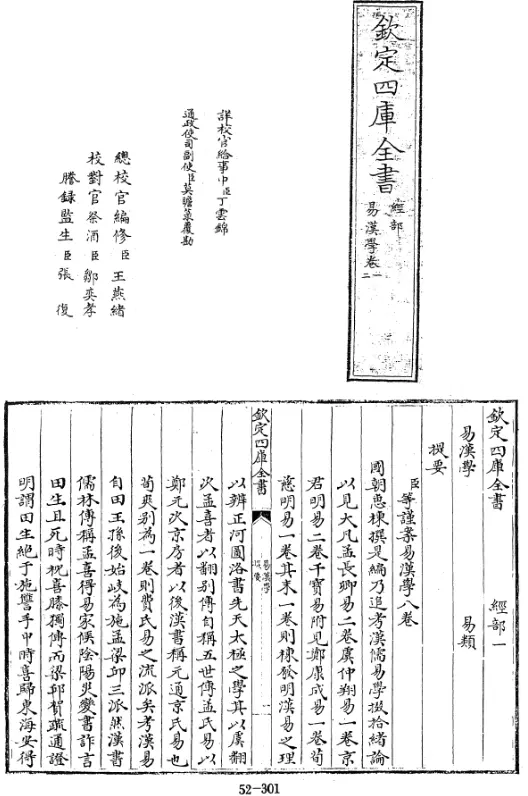 欽定四庫全書
經部
易漢學卷一
二
詳校官給事中臣丁雲錦
通政使司副使臣莫瞻菉覆勘
總校官編修臣王燕緒
校對官祭酒臣鄒奕孝
謄錄監生臣張復
欽定四庫全書 經部一
易漢學 易類
提要
臣等謹案易漢學八卷
國朝惠棟撰是編乃追考漢儒易學掇拾緒論
以見大凡孟長卿易二卷虞仲翔易一卷京
君明易二卷干寶易附見鄭康成易一卷荀
慈明易一卷其末一卷則棟發明漢易之理
欽定四庫全書
易漢學
提要
一
以辨正河圖洛書先天太極之學其以虞翻
次孟喜者以翻別傳自稱五世傳孟氏易以
鄭元次京房者以後漢書稱元通京氏易也
荀爽別為一卷則費氏易之流派矣考漢易
自田王孫後始岐為施孟梁邱三派然漢書
儒林傳稱孟喜得易家候陰陽災變書詐言
田生且死時枕喜膝獨傳而梁邱賀疏通證
明謂田生絕于施讐手中時喜歸東海安得
52-301